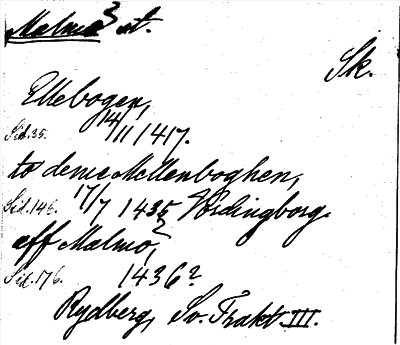 Malmö st.
Sk.
Ellebogen,
Sid. 35. 14/11 1417.
to deme Mellenboghen,
Sid. 146. 17/7 1435 Vordingborg.
aff Malmo,
Sid. 176. 1436?
Rydberg, Sv. Trakt. III.